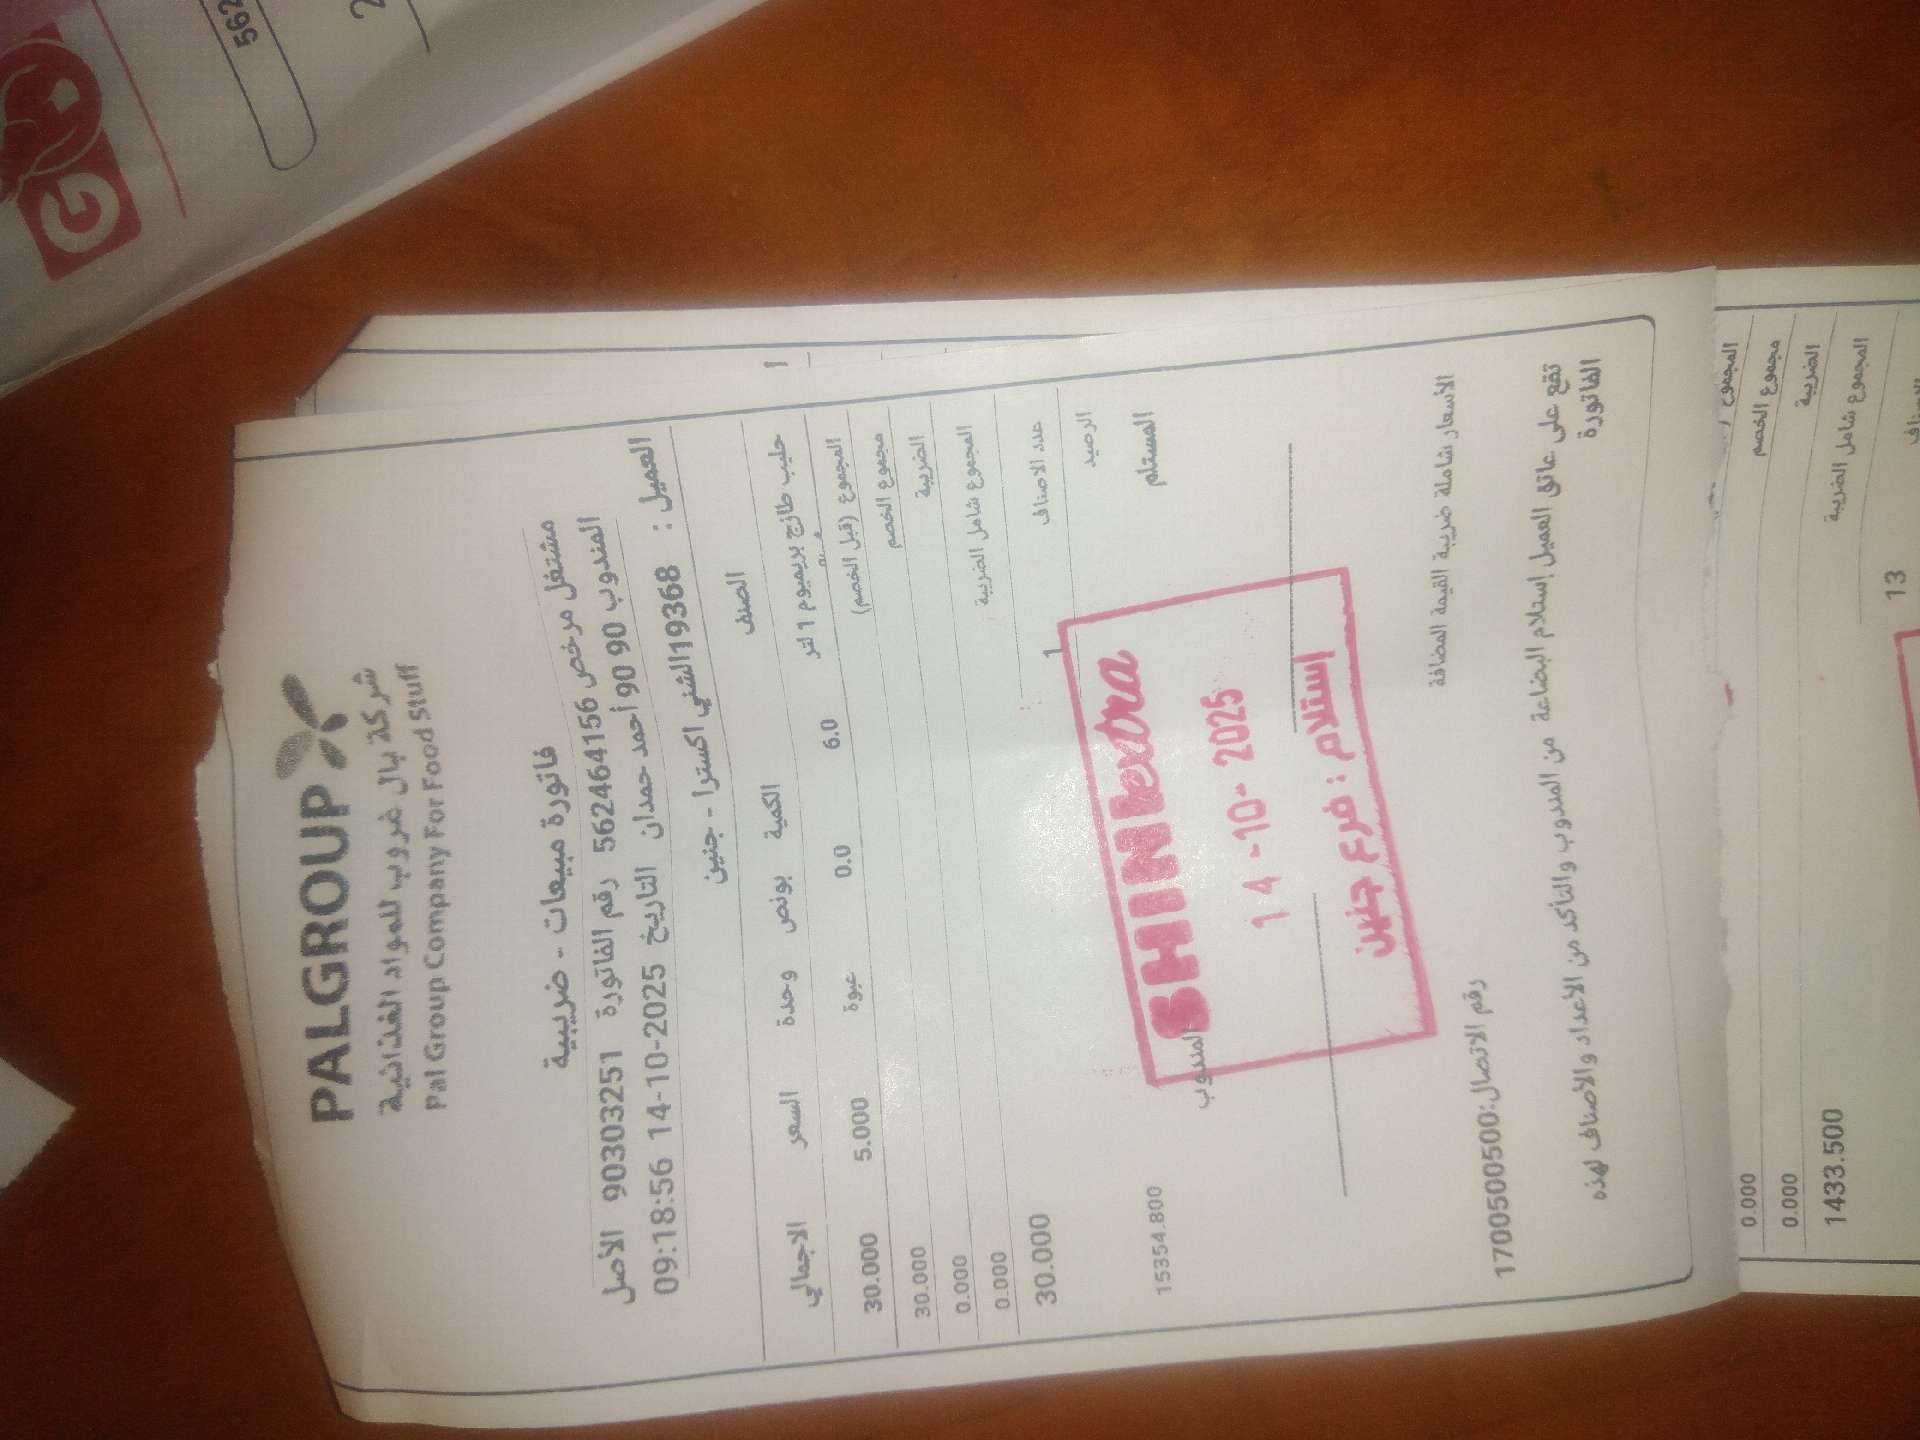 PALGROUP
شركة بال غروب للمواد الغذائية
Pal Group Company For Food Stuff
فاتورة مبيعات - ضريبية
مشتغل مرخص 562464156 رقم الفاتورة 90303251 الأصل
المندوب 90 90 أحمد حمدان التاريخ 14-10-2025 09:18:56
العميل : 19368 الشني اكسترا - جنين
الصنف الكمية بونص وحدة السعر الاجمالي
حليب طازج بريميوم 1 لتر 6.0 0.0 عبوة 5.000 30.000
المجموع (قبل الخصم) 30.000
مجموع الخصم 0.000
الضريبة 0.000
المجموع شامل الضريبة 30.000
عدد الاصناف 1
الرصيد 15354.800
المستلم المندوب
SHINI extra
14-10-2025
إستلام : فرع جنين
الأسعار شاملة ضريبة القيمة المضافة
رقم الاتصال:1700500500
تقع على عاتق العميل إستلام البضاعة من المندوب والتأكد من الأعداد والاصناف لهذه
الفاتورة
المجموع
مجموع الخصم 0.000
الضريبة 0.000
المجموع شامل الضريبة 1433.500
13
562
G